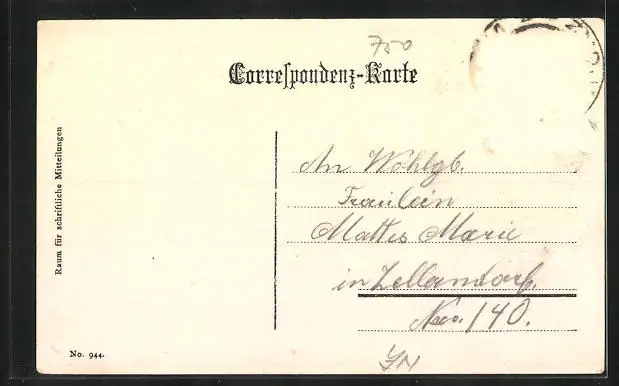 750
Correspondenz-Karte
Raum für schriftliche Mitteilungen
An Wohlgb.
Fraulein
Mattes Marie
in Zellerndorf.
Nro. 140.
No. 944.